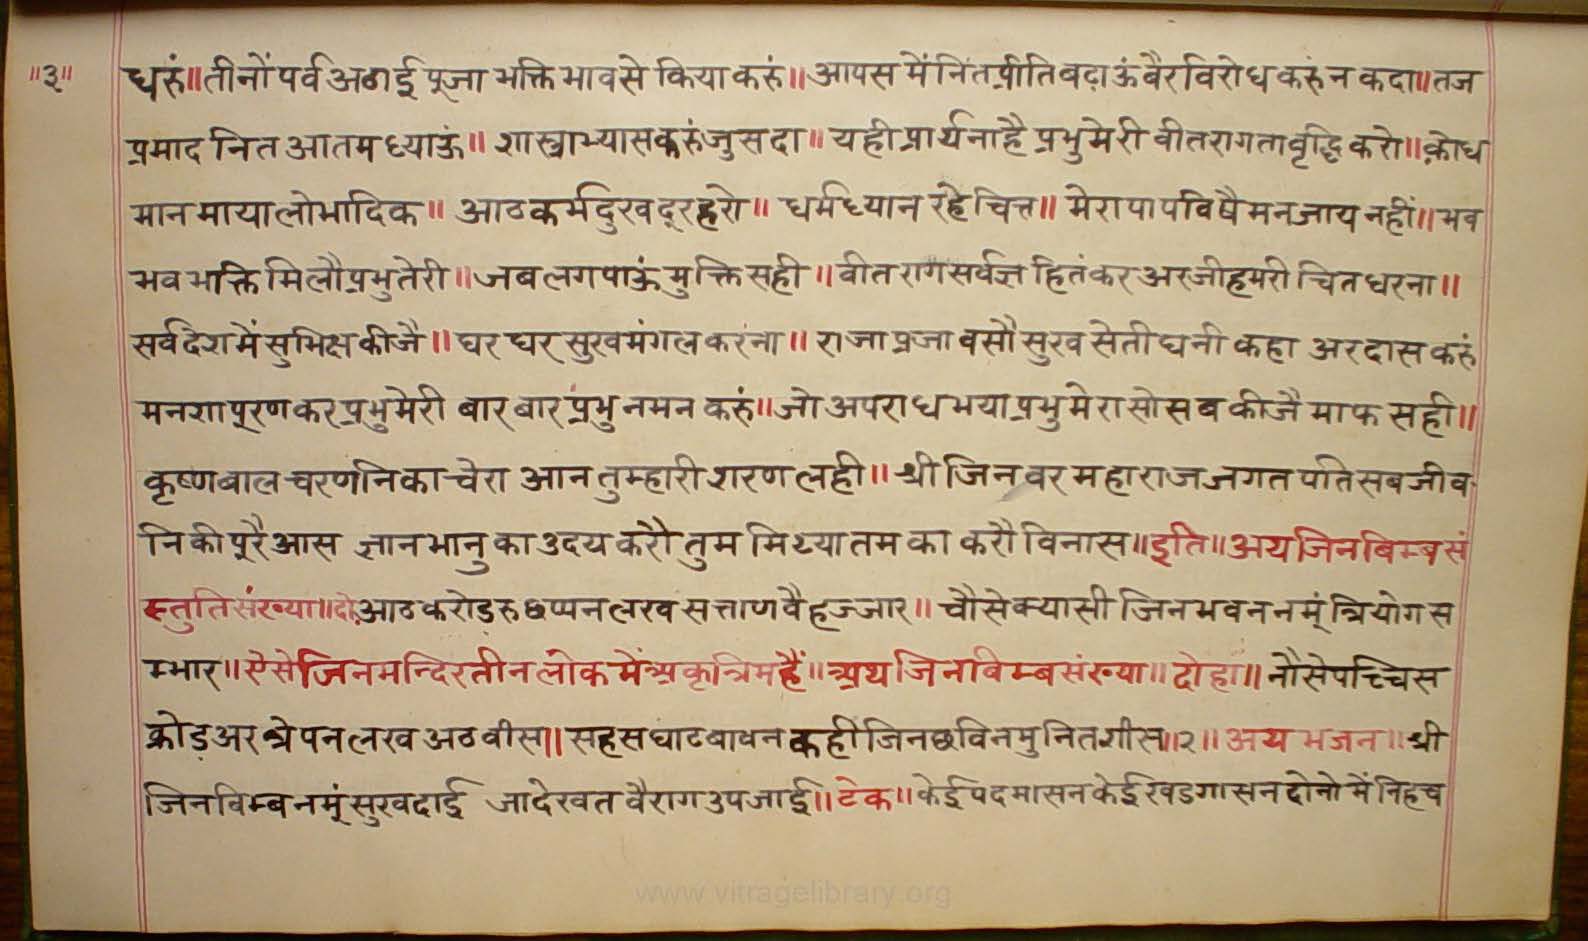 ॥३॥ धरुं॥तीनों पर्व अठाई पूजा भक्ति भावसे किया करुं॥आपस में नित प्रीति वढ़ाऊं वैर विरोध करुं न कदा॥तज
प्रमाद नित आतम ध्याऊं॥ शास्त्राभ्यास करुं जु सदा॥ यही प्रार्थना है प्रभु मेरी वीतरागता वृद्धि करो॥क्रोध
मान माया लोभादिक॥ आठ कर्म दुख दूर हरो॥ धर्म ध्यान रहे चित्त॥ मेरा पाप विषै मन जाय नहीं॥भव
भव भक्ति मिलौ प्रभु तेरी॥जब लग पाऊं मुक्ति सही॥वीतराग सर्वज्ञ हितंकर अरजी हमरी चित धरना॥
सर्व देश में सुभिक्ष कीजै॥घर घर सुख मंगल करना॥ राजा प्रजा वसौ सुख सेती घनी कहा अरदास करुं
मनशा पूरण कर प्रभु मेरी बार बार प्रभु नमन करुं॥जो अपराध भया प्रभु मेरा सो सब कीजै माफ सही॥
कृष्ण बाल चरणनि का चेरा आन तुम्हारी शरण लही॥श्री जिनवर महाराज जगत पति सब जीव
नि की पूरै आस ज्ञान भानु का उदय करौ तुम मिथ्यातम का करौ विनास॥इति॥अथ जिन बिम्ब सं
स्तुति संख्या॥दो.आठ करोड़ रु छप्पन लख सत्ताणवै हज्जार॥ चौसेक्यासी जिन भवन नमूं त्रियोग स
म्भार॥ऐसे जिन मन्दिर तीन लोक में अकृत्रिम हैं॥अथ जिन बिम्ब संख्या॥ दोहा॥ नौसे पच्चिस
क्रोड़ अर त्रेपन लख अठवीस॥सहस घाट बावन कहीं जिन छवि नमु नित शीस॥२॥ अथ भजन॥श्री
जिन बिम्ब नमूं सुखदाई जा देखत वैराग उपजाई॥टेक॥केई पदमासन केई खडगासन दोनो में निहच
www.vitragelibrary.org